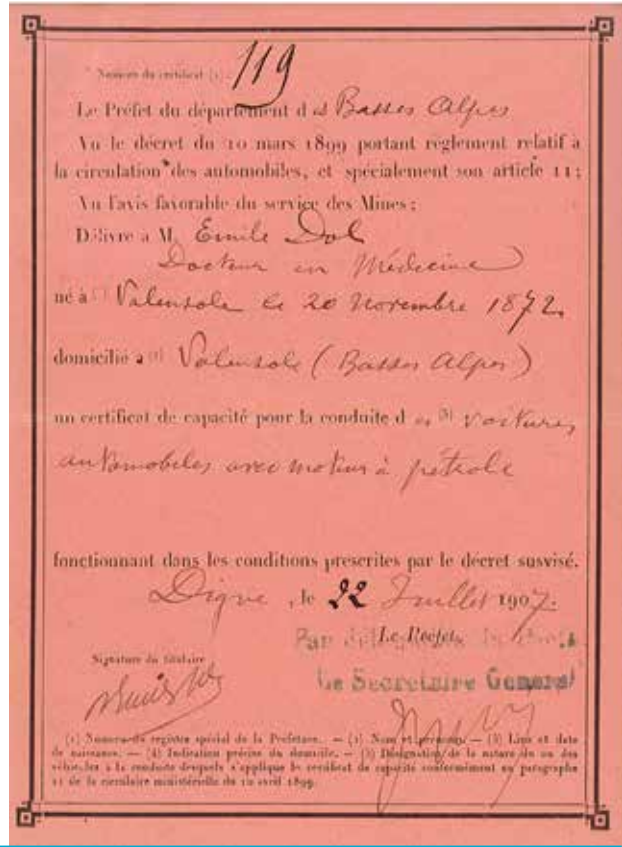 Numéro du certificat (1) : 119
Le Préfet du département des Basses Alpes
Vu le décret du 10 mars 1899 portant règlement relatif à
la circulation des automobiles, et spécialement son article 11;
Vu l'avis favorable du service des Mines;
Délivre à M. Emile Dol
Docteur en Médecine
né à Valensole le 20 Novembre 1872.
domicilié à (4) Valensole (Basses Alpes)
un certificat de capacité pour la conduite des (5) voitures
automobiles avec moteur à pétrole
fonctionnant dans les conditions prescrites par le décret susvisé.
Digne, le 22 Juillet 1907.
Le Préfet,
Par délégation
Signature du titulaire
Le Secrétaire Général
(1) Numéro du registre spécial de la Préfecture. — (2) Nom et prénoms. — (3) Lieu et date
de naissance. — (4) Indication précise du domicile. — (5) Désignation de la nature du ou des
véhicules à la conduite desquels s'applique le certificat de capacité conformément au paragraphe
11 de la circulaire ministérielle du 10 avril 1899.